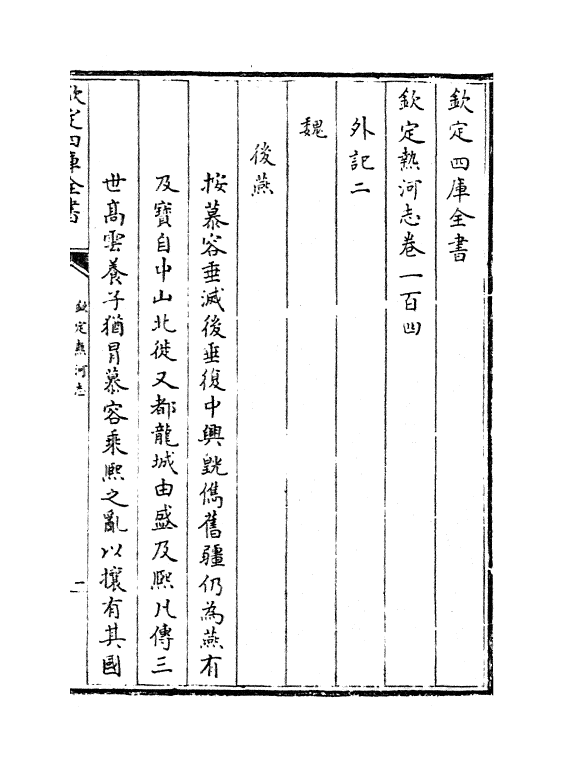 欽定四庫全書
欽定熱河志卷一百四
外記二
魏
後燕
按慕容垂滅後垂復中興㿠儁舊疆仍為燕有
及寶自中山北徙又都龍城由盛及熙凡傳三
世高雲養子猶冒慕容乘熙之亂以攘有其國
欽定四庫全書
欽定熱河志